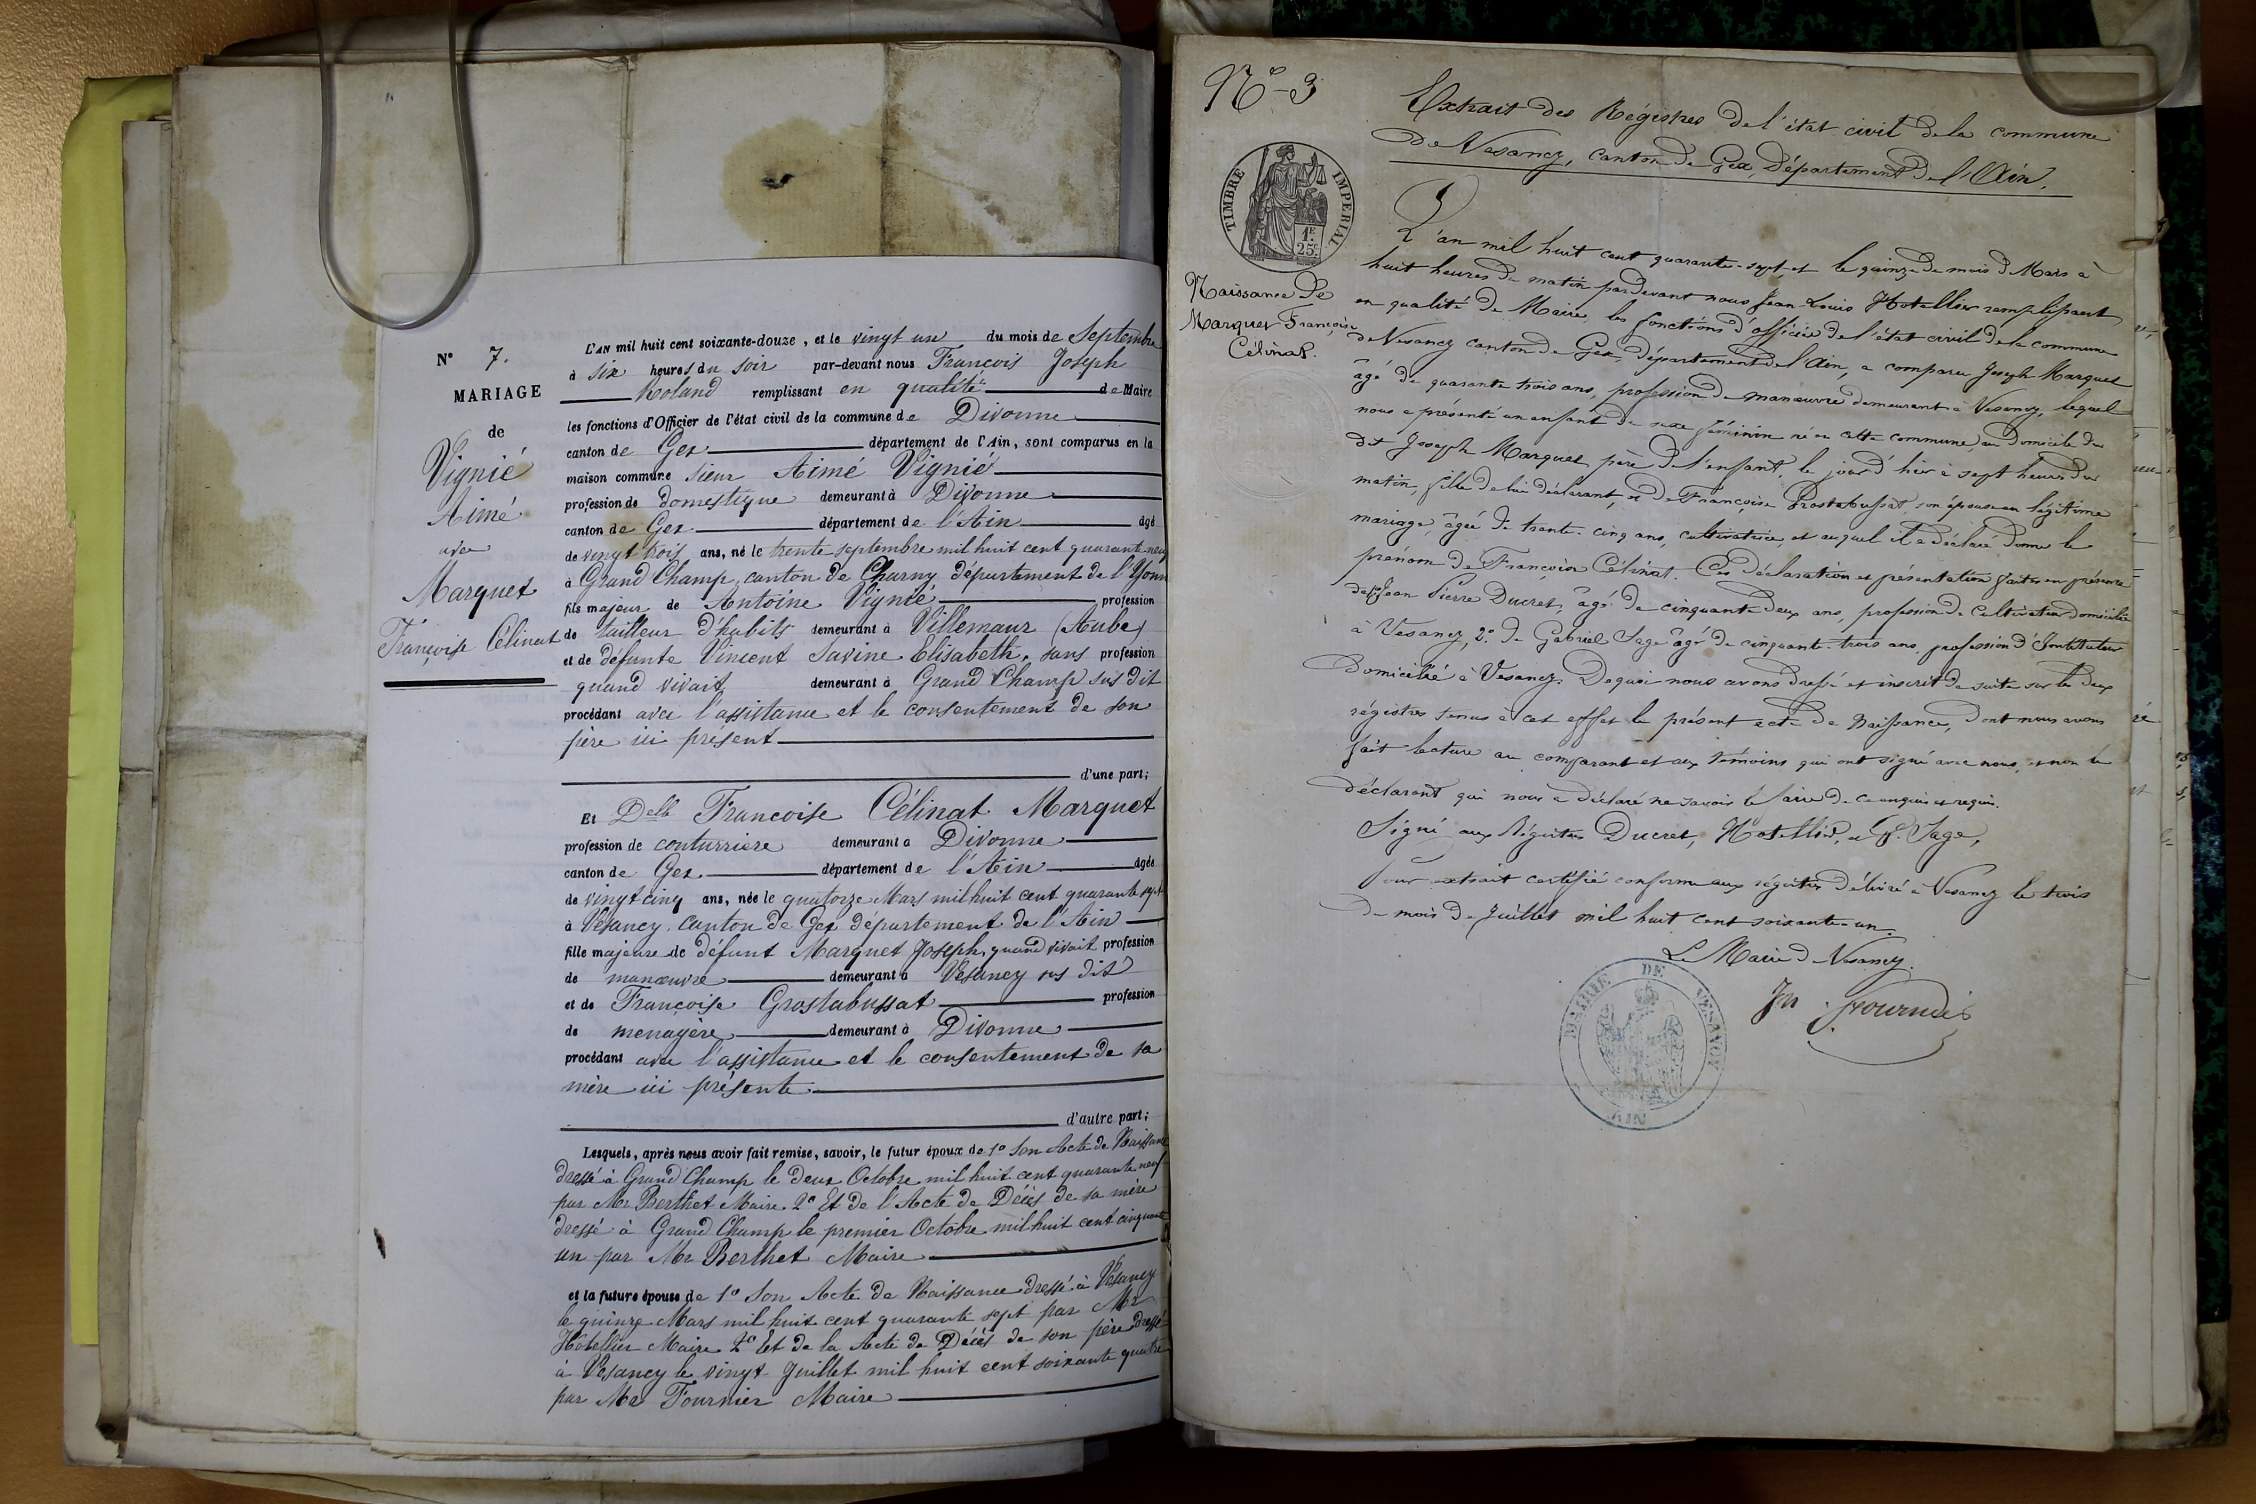 N° 7.
MARIAGE
de
Vignié
Aimé
avec
Marquet
Françoise Célinat
L'AN mil huit cent soixante-douze, et le vingt un du mois de Septembre
à six heures du soir par-devant nous François Joseph
Roland remplissant en qualité de Maire
les fonctions d'Officier de l'état civil de la commune de Divonne
canton de Gex département de l'Ain, sont comparus en la
maison commune sieur Aimé Vignié
profession de domestique demeurant à Divonne
canton de Gex département de l'Ain âgé
de vingt trois ans, né le trente septembre mil huit cent quarante neuf
à Grand Champ, canton de Charny département de l'Yonne
fils majeur de Antoine Vignié profession
de tailleur d'habits demeurant à Villemaur (Aube)
et de défunte Vincent Savine Elisabeth, sans profession
quand vivait demeurant à Grand Champ sus dit
procédant avec l'assistance et le consentement de son
père ici présent
d'une part;
Et Delle Francoise Célinat Marquet
profession de couturriere demeurant à Divonne
canton de Gex département de l'Ain âgée
de vingt cinq ans, née le quatorze Mars mil huit cent quarante sept
à Vesancy, canton de Gex département de l'Ain
fille majeure de défunt Marquet Joseph, quand vivait profession
de manœuvre demeurant à Vesancy sus dit
et de Françoise Grostabussat profession
de menagère demeurant à Divonne
procédant avec l'assistance et le consentement de sa
mère ici présente
d'autre part;
Lesquels, après nous avoir fait remise, savoir, le futur époux de 1° Son Acte de Naissance
dressé à Grand Champ le deux Octobre mil huit cent quarante neuf
par Mr Berthet Maire 2° Et de l'Acte de Décès de sa mère
dressé à Grand Champ le premier Octobre mil huit cent cinquante
un par Mr Berthet Maire
et la future épouse de 1° Son Acte de Naissance dressé à Vésancy
le quinze Mars mil huit cent quarante sept par Mr
Hotellier Maire 2° Et de la Acte de Décès de son père dressé
à Vesancy le vingt Juillet mil huit cent soixante quatre
par Mr Fournier Maire
N° - 3
TIMBRE IMPERIAL
1F. 25c.
Naissance De
Marquet Françoise
Célinat.
Extrait des Régistres de l'état civil de la commune
De Vesancy, canton de Gex, Département de l'Ain.
L'an mil huit cent quarante-sept et le quinze du mois de Mars à
huit heures du matin pardevant nous Jean Louis Hotellier remplissant
en qualité de Maire les fonctions d'officier de l'état civil de la commune
de Vesancy canton de Gex, département de l'Ain, a comparu Joseph Marquet
âgé de quarante trois ans, profession de manœuvre demeurant à Vesancy, lequel
nous a présenté un enfant du sexe féminin né en cette commune, au domicile du
dit Joseph Marquet père de l'enfant, le jour d'hier à sept heures du
matin, fille de lui déclarant, et de Françoise Grostabussat, son épouse en légitime
mariage, âgée de trente-cinq ans, cultivatrice et auquel il a déclaré donné le
prénom de Françoise Célinat. Ces déclaration et présentation faites en présence
de 1° Jean Pierre Ducret, âgé de cinquante deux ans, profession de cultivateur domicilié
à Vesancy, 2° de Gabriel Sage âgé de cinquante-trois ans, profession d'Instituteur
Domicilié à Vesancy. De quoi nous avons dressé et inscrit de suite sur les deux
régistres tenus à cet effet le présent acte de Naissance, dont nous avons
fait lecture au comparant et aux témoins qui ont signé avec nous, et non le
déclarant qui nous a déclaré ne savoir le faire de ce enquis et requis.
Signé aux Régistres Ducret, Hotellier, et G. Sage,
Pour extrait certifié conforme aux régistres délivré à Vesancy le trois
du mois de Juillet mil huit cent soixante-un.
Le Maire de Vesancy.
Jn Fournier
MAIRIE DE VESANCY
AIN